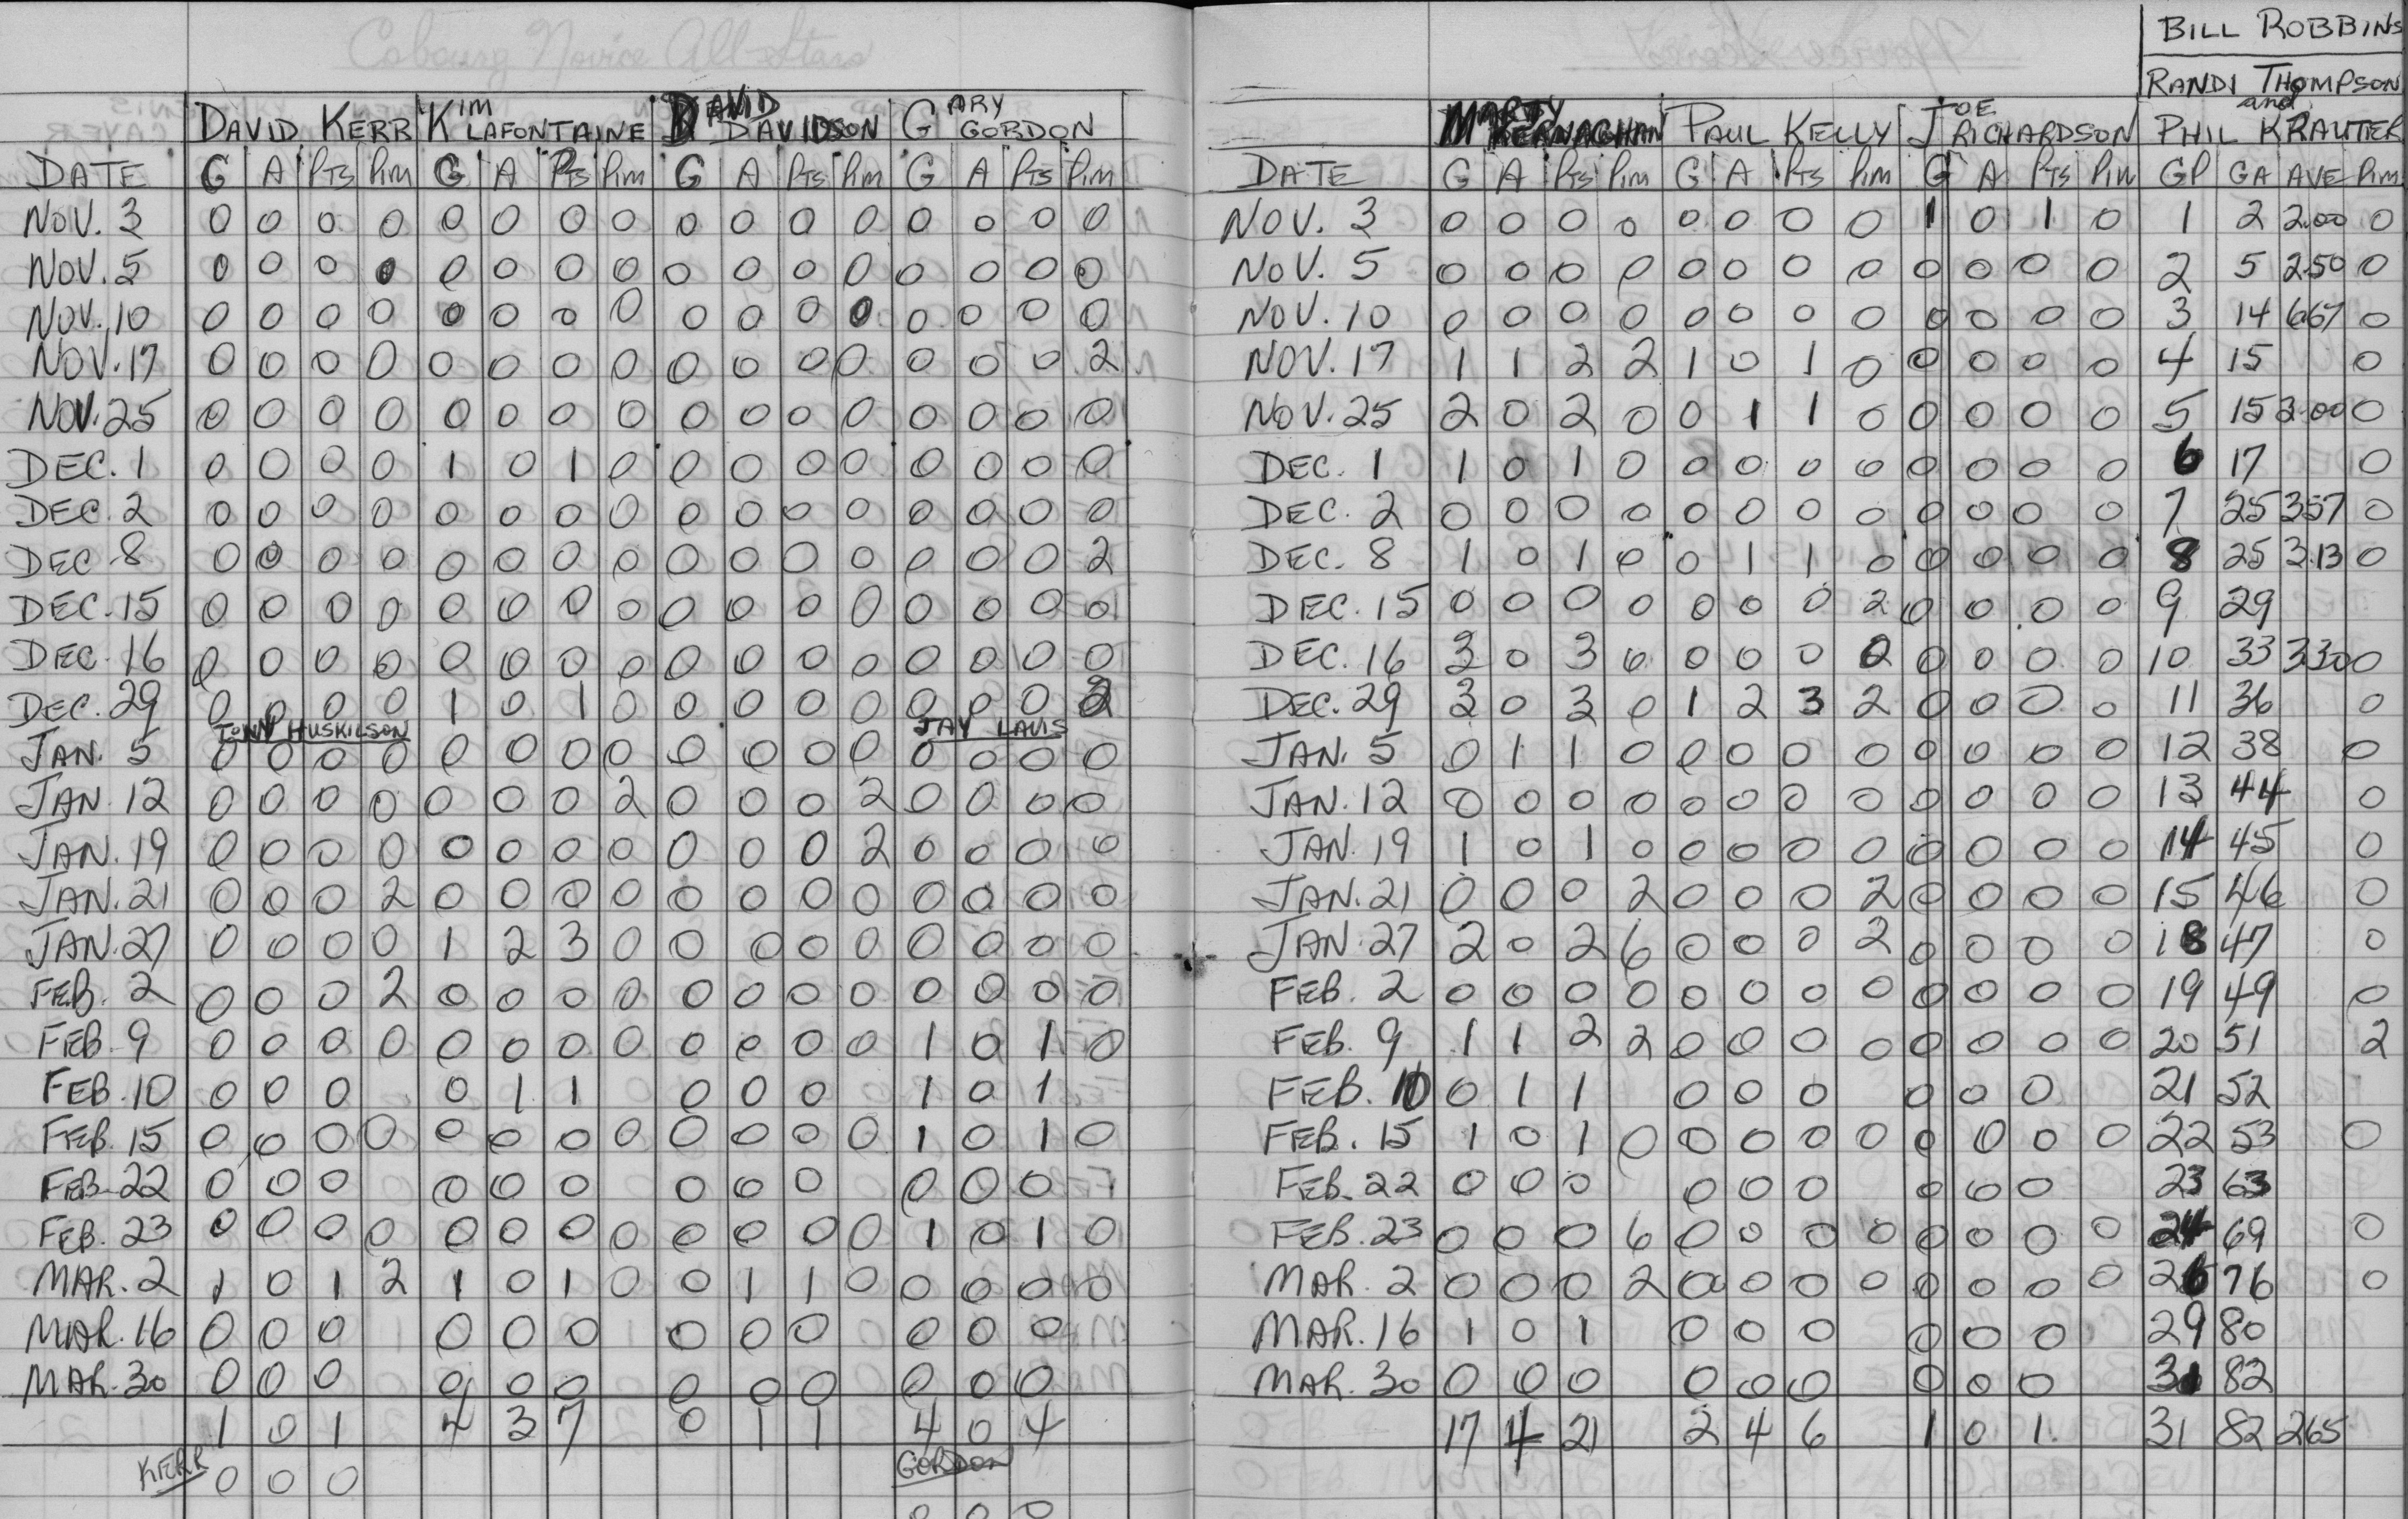 Cobourg Novice All-Stars
BILL ROBBINS
RANDI THOMPSON
and
DAVID KERR KIM LAFONTAINE DAVID DAVIDSON GARY GORDON MARTY KERNAGHAN PAUL KELLY JOE RICHARDSON PHIL KRAUTER
DATE G A PTS PIM G A PTS PIM G A PTS PIM G A PTS PIM DATE G A PTS PIM G A PTS PIM G A PTS PIM GP GA AVE PIM
NOV. 3 0 0 0 0 0 0 0 0 0 0 0 0 0 0 0 0 NOV. 3 0 0 0 0 0 0 0 0 1 0 1 0 1 2 2.00 0
NOV. 5 0 0 0 0 0 0 0 0 0 0 0 0 0 0 0 0 NOV. 5 0 0 0 0 0 0 0 0 0 0 0 0 2 5 2.50 0
NOV. 10 0 0 0 0 0 0 0 0 0 0 0 0 0 0 0 0 NOV. 10 0 0 0 0 0 0 0 0 0 0 0 0 3 14 667 0
NOV. 17 0 0 0 0 0 0 0 0 0 0 0 0 0 0 0 2 NOV. 17 1 1 2 2 1 0 1 0 0 0 0 0 4 15 0
NOV. 25 0 0 0 0 0 0 0 0 0 0 0 0 0 0 0 0 NOV. 25 2 0 2 0 0 1 1 0 0 0 0 0 5 15 3.00 0
DEC. 1 0 0 0 0 1 0 1 0 0 0 0 0 0 0 0 0 DEC. 1 1 0 1 0 0 0 0 0 0 0 0 0 6 17 0
DEC. 2 0 0 0 0 0 0 0 0 0 0 0 0 0 0 0 0 DEC. 2 0 0 0 0 0 0 0 0 0 0 0 0 7 25 357 0
DEC 8 0 0 0 0 0 0 0 0 0 0 0 0 0 0 0 2 DEC. 8 1 0 1 0 0 1 1 0 0 0 0 0 8 25 3.13 0
DEC. 15 0 0 0 0 0 0 0 0 0 0 0 0 0 0 0 0 DEC. 15 0 0 0 0 0 0 0 2 0 0 0 0 9 29
DEC. 16 0 0 0 0 0 0 0 0 0 0 0 0 0 0 0 0 DEC. 16 3 0 3 0 0 0 0 0 0 0 0 10 33 330 0
DEC. 29 0 0 0 0 1 0 1 0 0 0 0 0 0 0 0 2 DEC. 29 3 0 3 0 1 2 3 2 0 0 0 0 11 36 0
TONY HUSKILSON JAY LAUS
JAN. 5 0 0 0 0 0 0 0 0 0 0 0 0 0 0 0 0 JAN. 5 0 1 1 0 0 0 0 0 0 0 0 0 12 38 0
JAN. 12 0 0 0 0 0 0 0 2 0 0 0 2 0 0 0 0 JAN. 12 0 0 0 0 0 0 0 0 0 0 0 0 13 44 0
JAN. 19 0 0 0 0 0 0 0 0 0 0 0 2 0 0 0 0 JAN. 19 1 0 1 0 0 0 0 0 0 0 0 0 14 45 0
JAN. 21 0 0 0 2 0 0 0 0 0 0 0 0 0 0 0 0 JAN. 21 0 0 0 2 0 0 0 2 0 0 0 0 15 46 0
JAN. 27 0 0 0 0 1 2 3 0 0 0 0 0 0 0 0 0 JAN. 27 2 0 2 6 0 0 0 2 0 0 0 0 18 47 0
FEB. 2 0 0 0 2 0 0 0 0 0 0 0 0 0 0 0 0 FEB. 2 0 0 0 0 0 0 0 0 0 0 0 0 19 49 0
FEB. 9 0 0 0 0 0 0 0 0 0 0 0 0 1 0 1 0 FEB. 9 1 1 2 2 0 0 0 0 0 0 0 0 20 51 2
FEB. 10 0 0 0 0 1 1 0 0 0 1 0 1 FEB. 10 0 1 1 0 0 0 0 0 0 21 52
FEB. 15 0 0 0 0 0 0 0 0 0 0 0 0 1 0 1 0 FEB. 15 1 0 1 0 0 0 0 0 0 0 0 0 22 53 0
FEB. 22 0 0 0 0 0 0 0 0 0 0 0 0 FEB. 22 0 0 0 0 0 0 0 0 0 23 63
FEB. 23 0 0 0 0 0 0 0 0 0 0 0 0 1 0 1 0 FEB. 23 0 0 0 6 0 0 0 0 0 0 0 0 24 69 0
MAR. 2 1 0 1 2 1 0 1 0 0 1 1 0 0 0 0 0 MAR. 2 0 0 0 2 0 0 0 0 0 0 0 0 26 76 0
MAR. 16 0 0 0 0 0 0 0 0 0 0 0 0 MAR. 16 1 0 1 0 0 0 0 0 0 29 80
MAR. 30 0 0 0 0 0 0 0 0 0 0 0 0 MAR. 30 0 0 0 0 0 0 0 0 0 31 82
1 0 1 4 3 7 0 1 1 4 0 4 17 4 21 2 4 6 1 0 1 31 82 265
KERR 0 0 0 GORDON
0 0 0